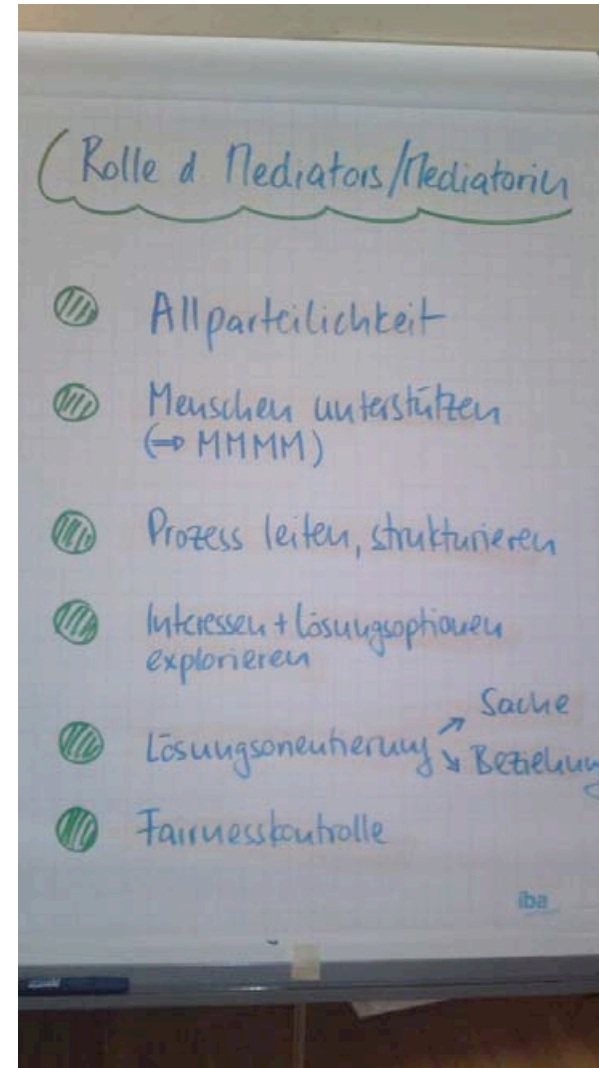 Rolle d Mediators/Mediatorin
Allparteilichkeit
Menschen unterstützen
(⇒ MMMM)
Prozess leiten, strukturieren
Interessen + Lösungsoptionen
explorieren
Lösungsorientierung ↗ Sache
↘ Beziehung
Fairnesskontrolle
iba